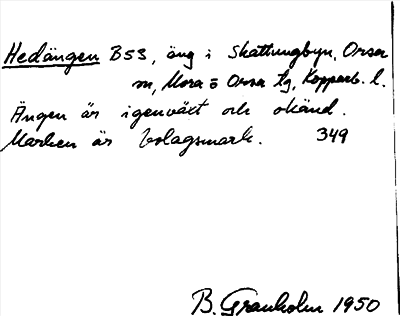 Hedängen B53, äng i Skattungbyn, Orsa
sn, Mora o Orsa tg, Kopparb. l.
Ängen är igenväxt och okänd.
Marken är bolagsmark. 349
B. Granholm 1950